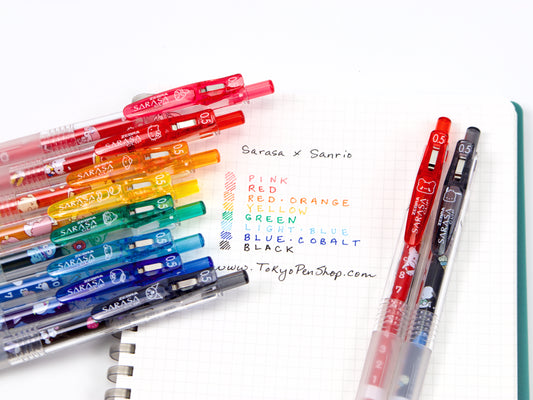 Sarasa x Sanrio
PINK
RED
RED·ORANGE
YELLOW
GREEN
LIGHT·BLUE
BLUE·COBALT
BLACK
www.TokyoPenShop.com
ZEBRA
SARASA
0.5
ZEBRA
SARASA
0.5
SARASA
0.5
SARASA
0.5
SARASA
0.5
SARASA
0.5
SARASA
0.5
SARASA
0.5
0.5
ZEBRA
SARASA
0.5
ZEBRA
SARASA